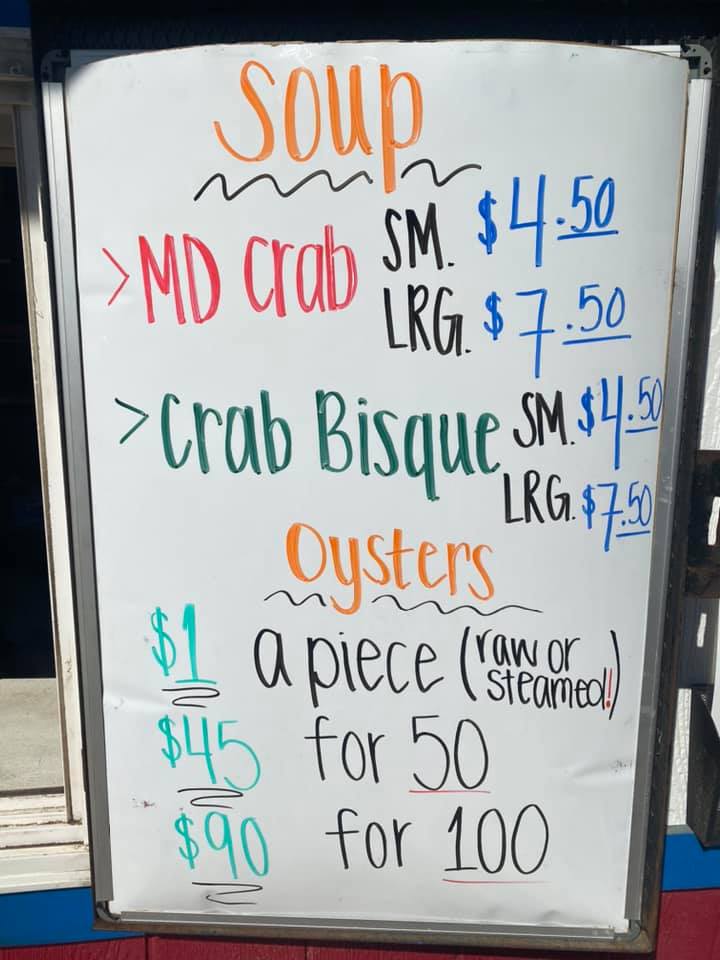 Soup
>MD Crab SM. $4.50
LRG. $7.50
>Crab Bisque SM. $4.50
LRG. $7.50
Oysters
$1 a piece (raw or
steamed!)
$45 for 50
$90 for 100